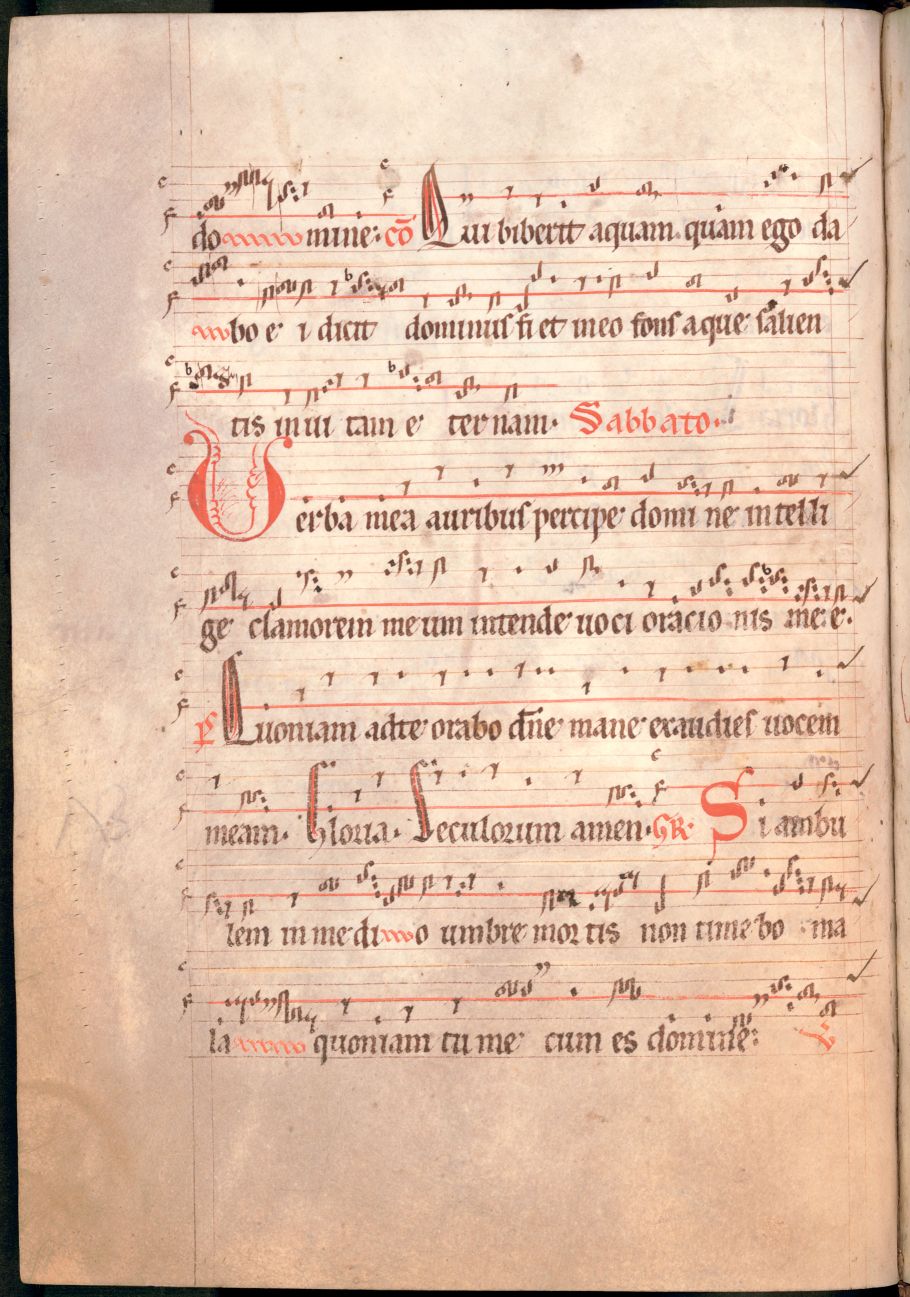 do mine: cō Qui biberit aquam quam ego da
bo e i dicit dominus fi et in eo fons aque salien
tis in ui tam e ter nam. Sabbato.
Verba mea auribus percipe domi ne intelli
ge clamorem me um intende uoci oracio nis me e.
ps Quoniam ad te orabo dñe mane exaudies uocem
meam. Gloria. Seculorum amen. GR. Si ambu
lem in me di o umbre mor tis non time bo ma
la quoniam tu me cum es domine: